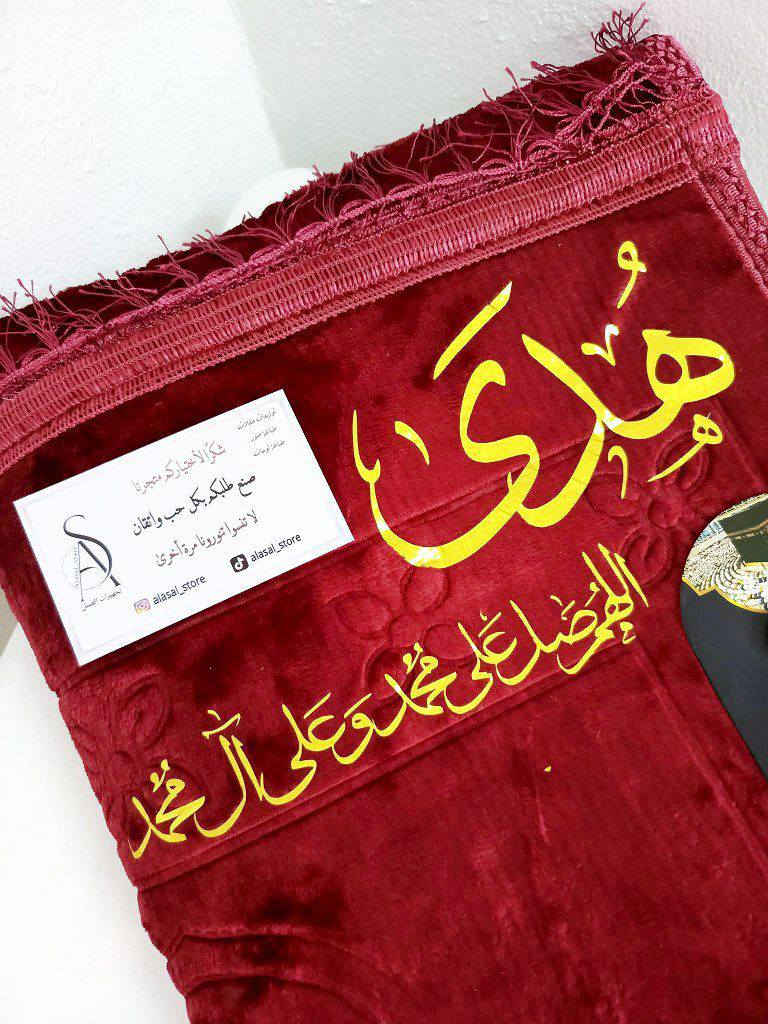 هُدى
اللهم صل على محمد وعلى آل محمد
شكرًا لأختياركم متجرنا
صنع طلبكم بكل حب واتقان
لا تنسوا تزورونا مرة أخرى
alasal_store
alasal_store